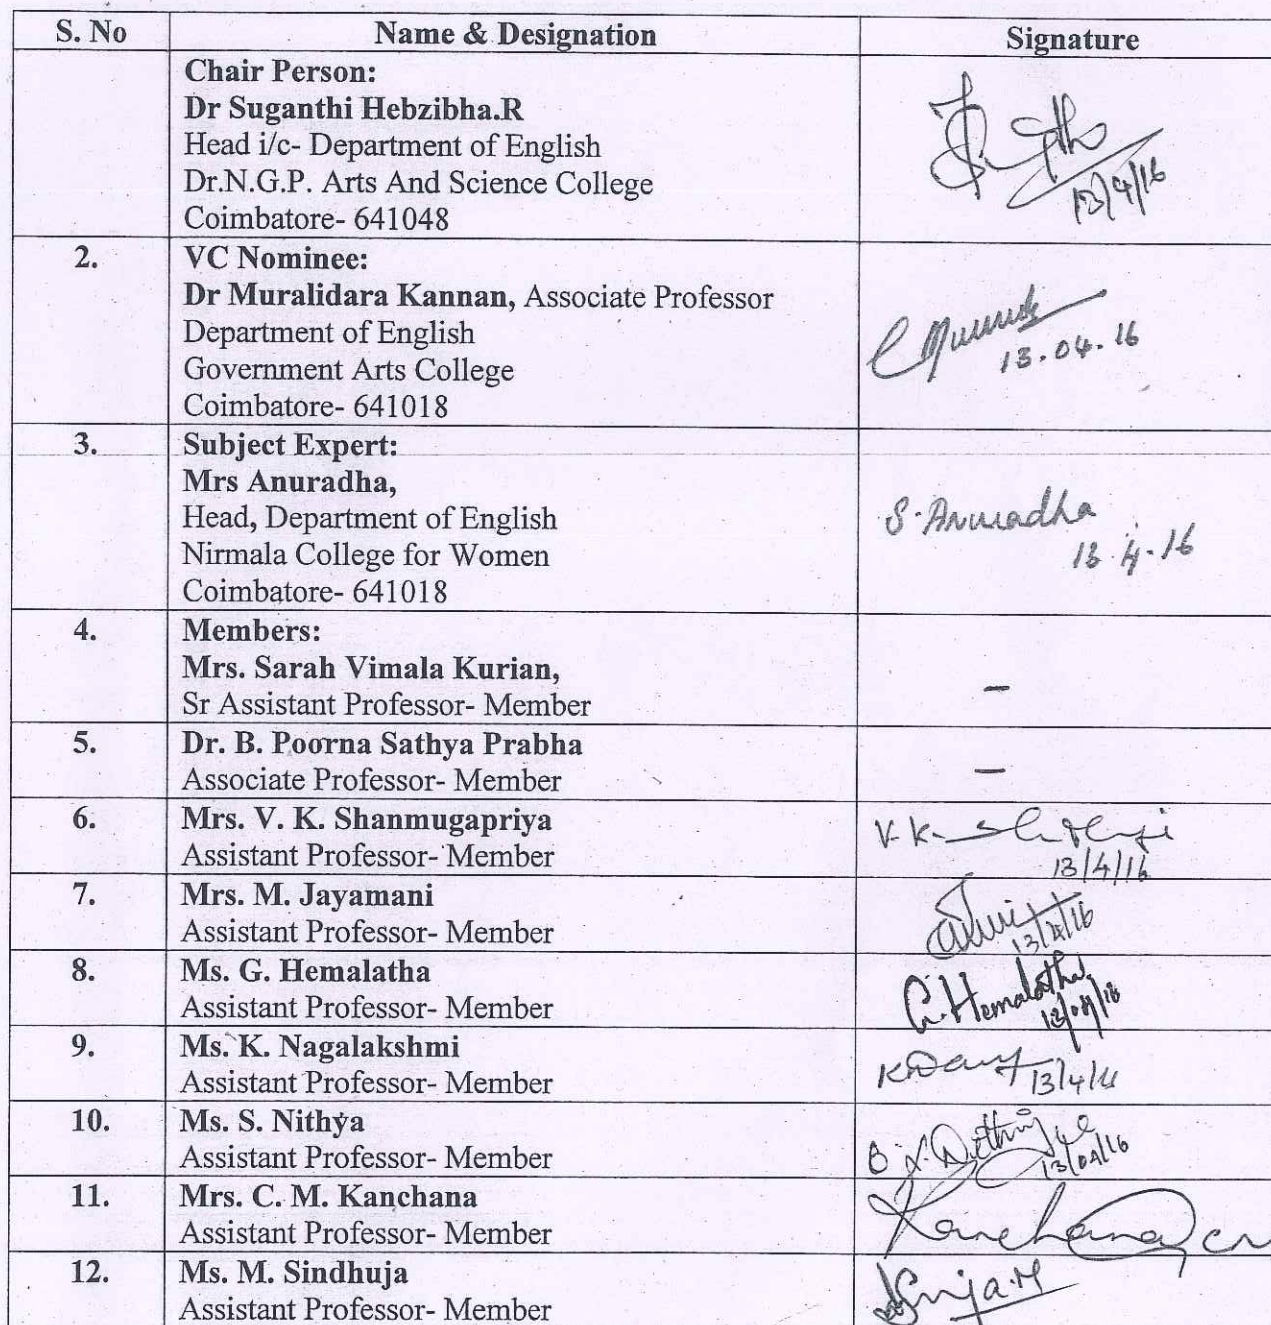 S. No Name & Designation Signature
Chair Person:
Dr Suganthi Hebzibha.R
Head i/c- Department of English
Dr.N.G.P. Arts And Science College
Coimbatore- 641048
13/4/16
2. VC Nominee:
Dr Muralidara Kannan, Associate Professor
Department of English
Government Arts College
Coimbatore- 641018
13.04.16
3. Subject Expert:
Mrs Anuradha,
Head, Department of English
Nirmala College for Women
Coimbatore- 641018
S. Anuradha
13.4.16
4. Members:
Mrs. Sarah Vimala Kurian,
Sr Assistant Professor- Member
–
5. Dr. B. Poorna Sathya Prabha
Associate Professor- Member
–
6. Mrs. V. K. Shanmugapriya
Assistant Professor- Member
V. K.
13/4/16
7. Mrs. M. Jayamani
Assistant Professor- Member
13/4/16
8. Ms. G. Hemalatha
Assistant Professor- Member
G. Hemalatha
13/04/16
9. Ms. K. Nagalakshmi
Assistant Professor- Member
13/4/16
10. Ms. S. Nithya
Assistant Professor- Member
13/04/16
11. Mrs. C. M. Kanchana
Assistant Professor- Member
Kanchana
12. Ms. M. Sindhuja
Assistant Professor- Member